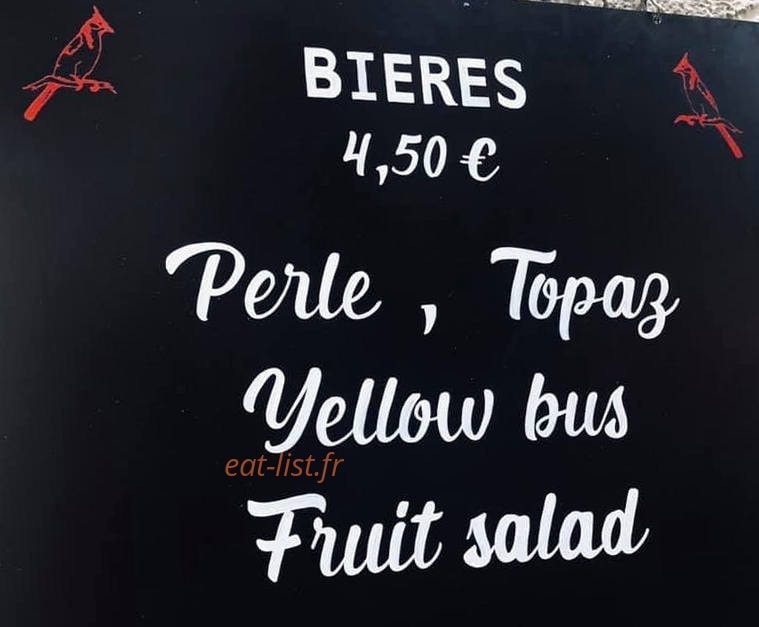 BIERES
4,50 €
Perle , Topaz
Yellow bus
eat-list.fr
Fruit salad